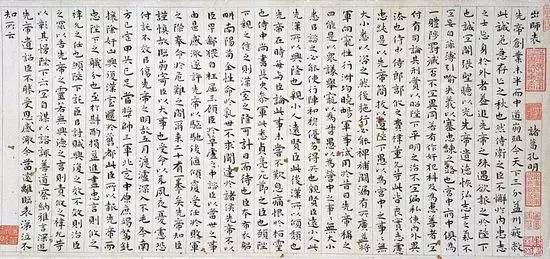 出師表 諸葛孔明
先帝創業未半而中道崩殂今天下三分益州疲敝
此誠危急存亡之秋也然侍衛之臣不懈於内忠志
之士忘身於外者蓋追先帝之殊遇欲報之於陛下
也誠宜開張聖聽以光先帝遺德恢弘志士之氣不
宜妄自菲薄引喻失義以塞忠諫之路也宮中府中俱為
一體陟罰臧否不宜異同若有作姦犯科及為忠善者宜
付有司論其刑賞以昭陛下平明之治不宜偏私使内外異
法也侍中侍郎郭攸之費禕董允等此皆良實志慮
忠純是以先帝簡拔以遺陛下愚以為宮中之事事無
大小悉以咨之然後施行必能裨補闕漏有所廣益將
軍向寵性行淑均曉暢軍事試用於昔日先帝稱之曰
能是以眾議舉寵為督愚以為營中之事事無大小
悉以咨之必能使行陣和穆優劣得所也親賢臣遠小人此
先漢所以興隆也親小人遠賢臣此後漢所以傾頹也
先帝在時每與臣論此事未嘗不歎息痛恨於桓靈
也侍中尚書長史參軍此悉貞亮死節之臣也願陛
下親之信之則漢室之隆可計日而待也臣本布衣躬
耕南陽苟全性命於亂世不求聞達於諸侯先帝不以
臣卑鄙猥自枉屈三顧臣於草廬之中諮臣以當世之事
由是感激遂許先帝以驅馳後值傾覆受任於敗軍
之際奉命於危難之間爾來二十有一年矣先帝知臣
謹慎故臨崩寄臣以大事也受命以來夙夜憂慮恐
付託不效以傷先帝之明故五月渡瀘深入不毛今南
方已定甲兵已足當獎帥三軍北定中原庶竭駑鈍
攘除姦凶興復漢室還於舊都此臣所以報先帝而
忠陛下之職分也至於斟酌損益進盡忠言則攸之
禕允之任也願陛下託臣以討賊興復之效不效則治臣
之罪以告先帝之靈若無興德之言則責攸之禕允等
之咎以彰其慢陛下亦宜自謀以諮諏善道察納雅言深追
先帝遺詔臣不勝受恩感激今當遠離臨表涕泣不
知所云